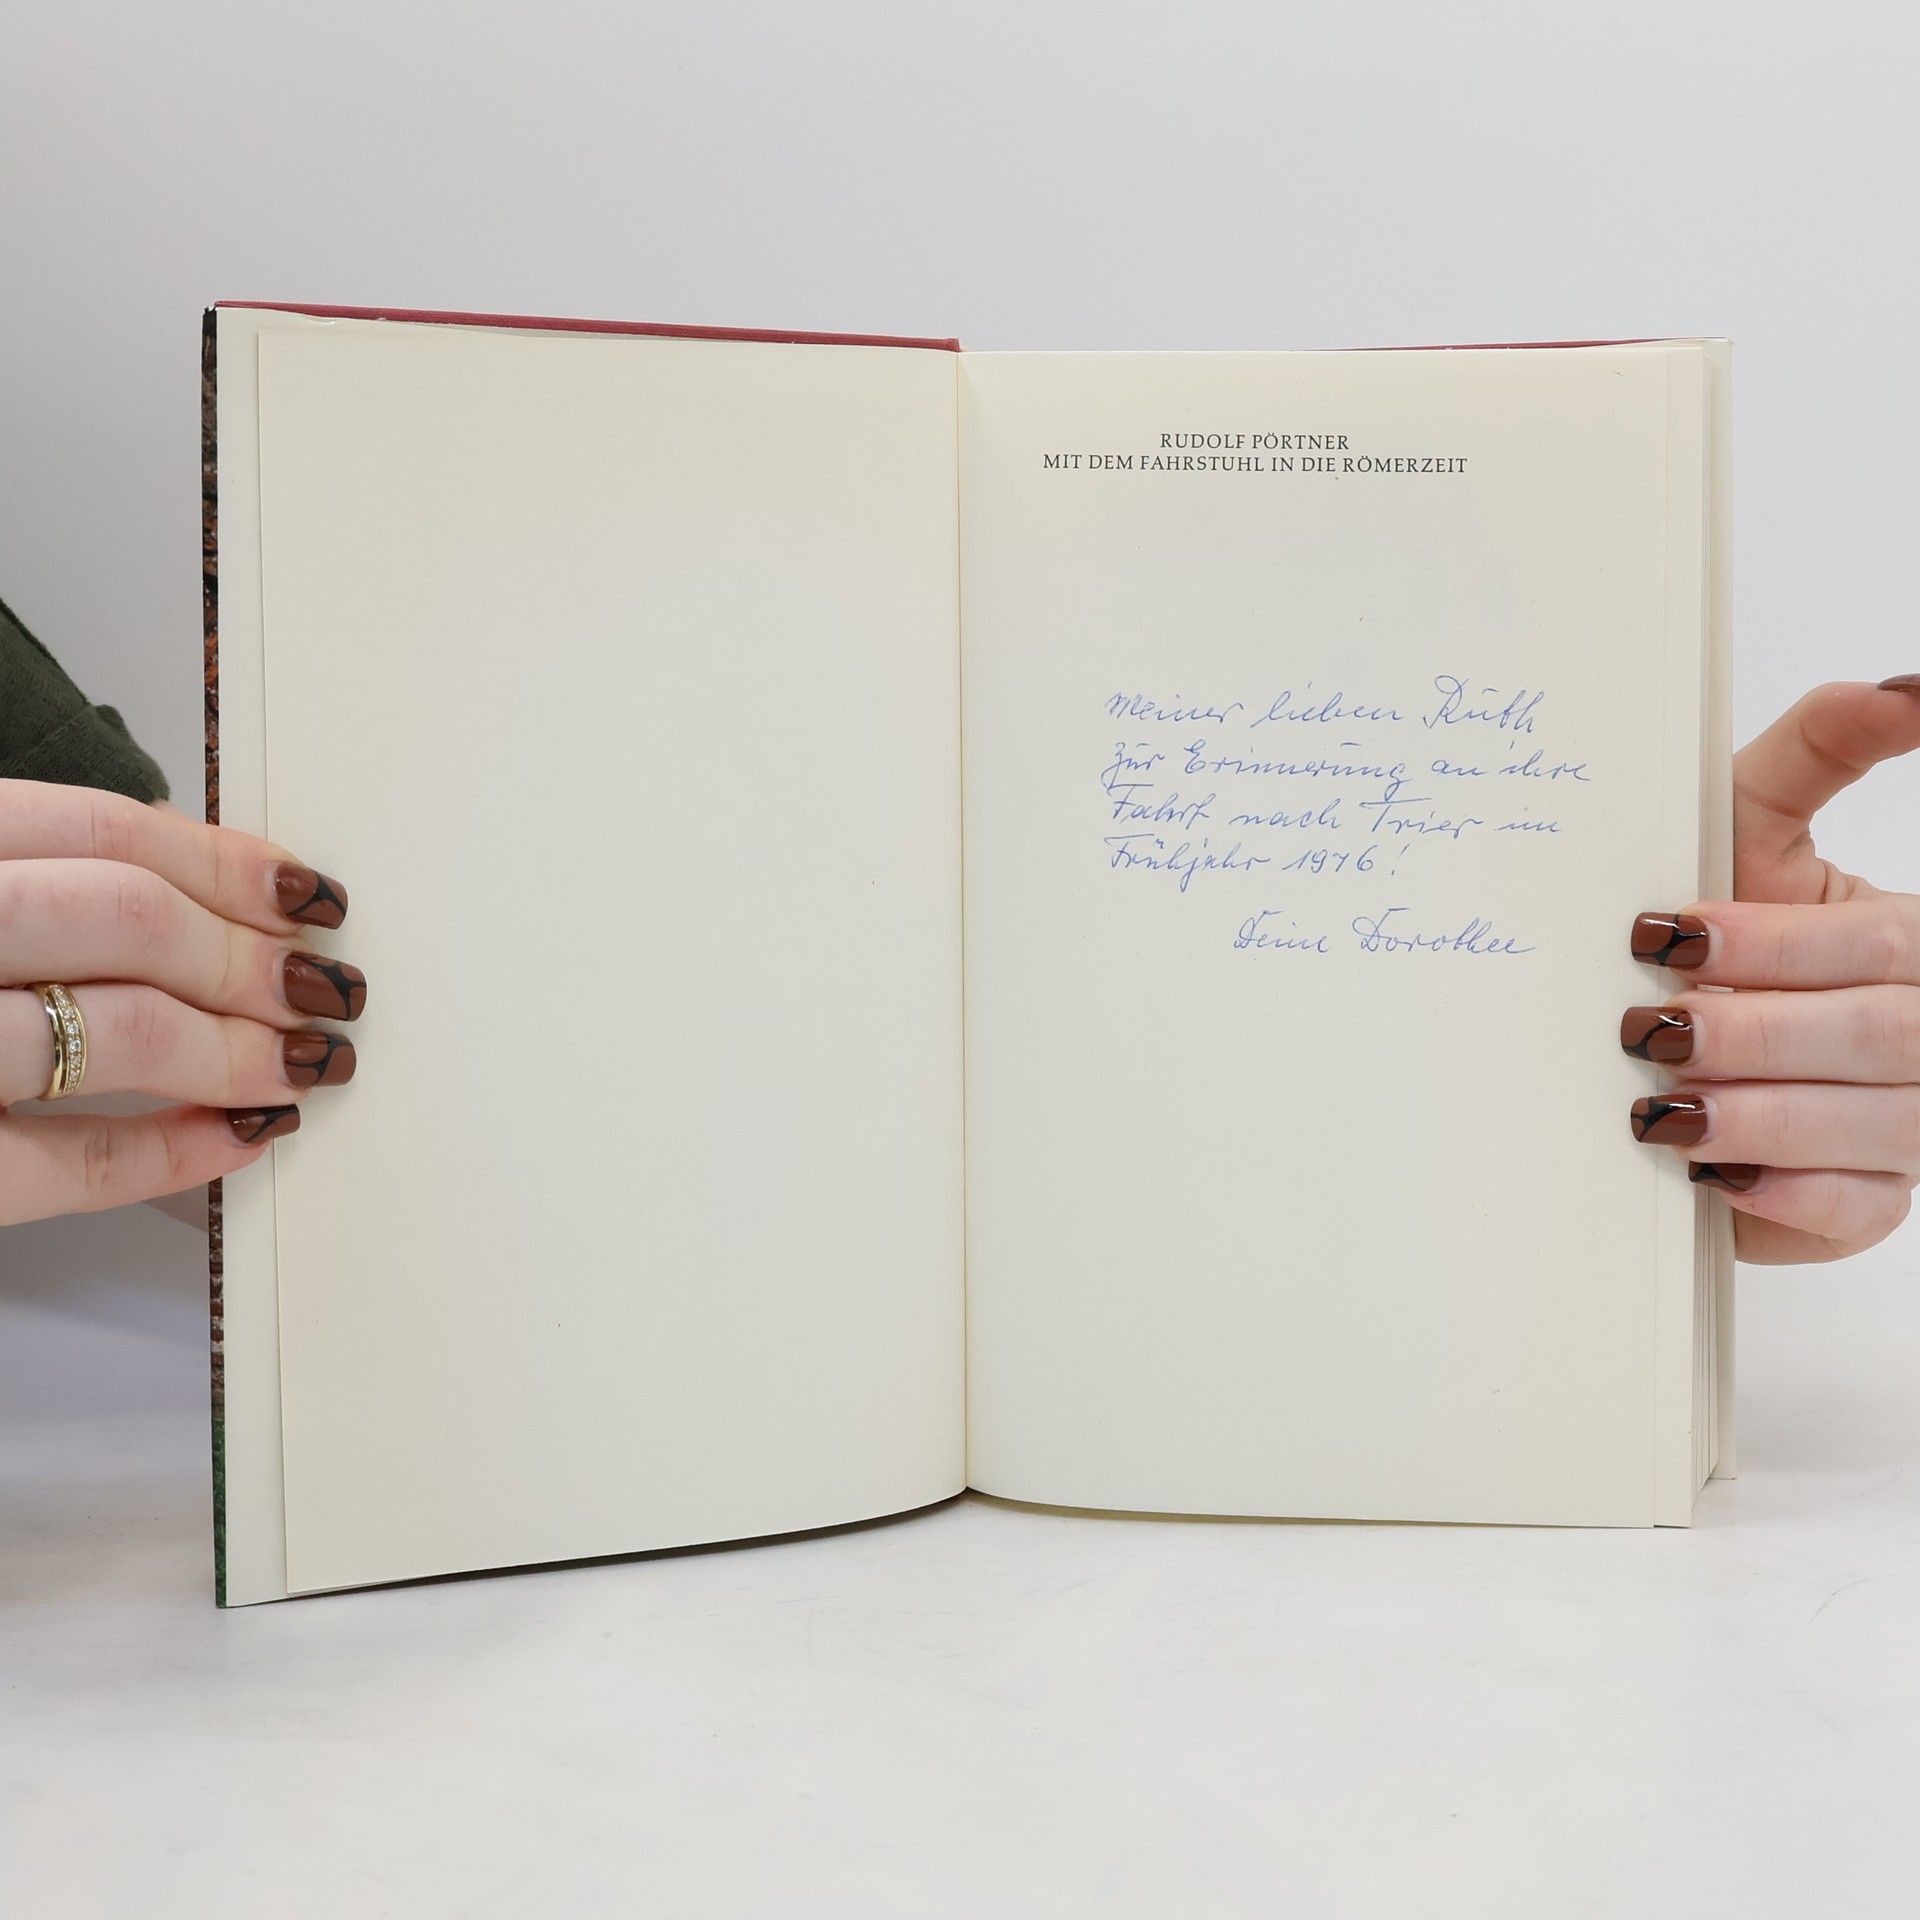 RUDOLF PÖRTNER
MIT DEM FAHRSTUHL IN DIE RÖMERZEIT
Meiner lieben Ruth
zur Erinnerung an ihre
Fahrt nach Trier im
Frühjahr 1976!
Deine Dorothee